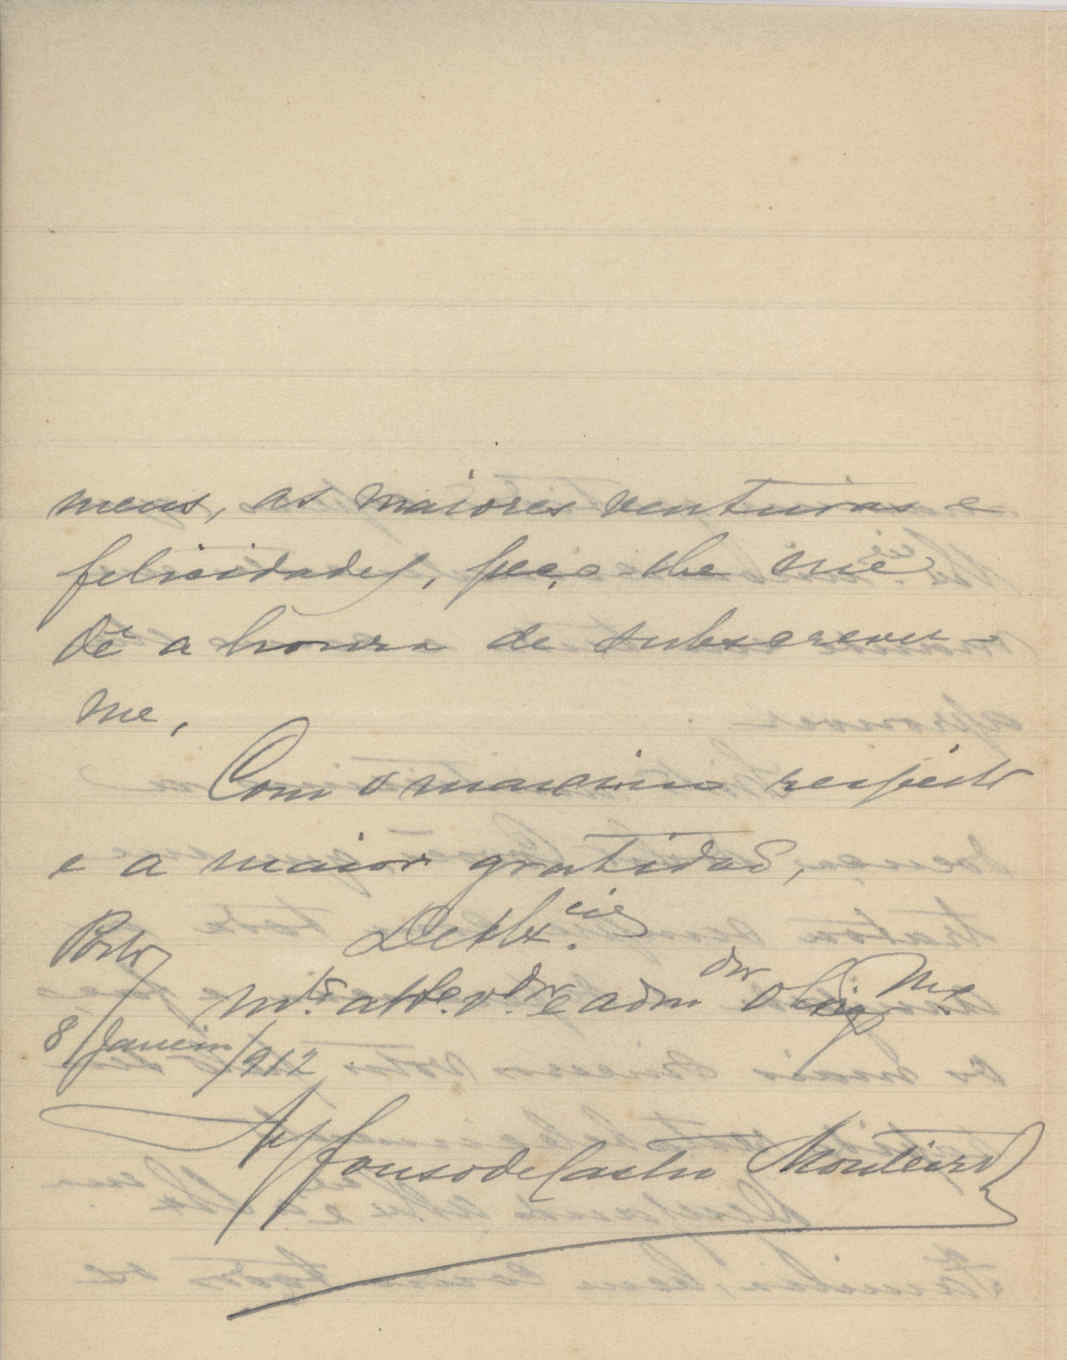 meus, as maiores venturas e
felicidades, peço lhe me
dê a honra de subscrever-
me,
Com o maximo respeito
e a maior gratidão,
De V. Ex.cia
Porto
m.to att.e v.dor e adm.dor obrig.mo
8/Janeiro/912
Affonso de Castro Monteiro